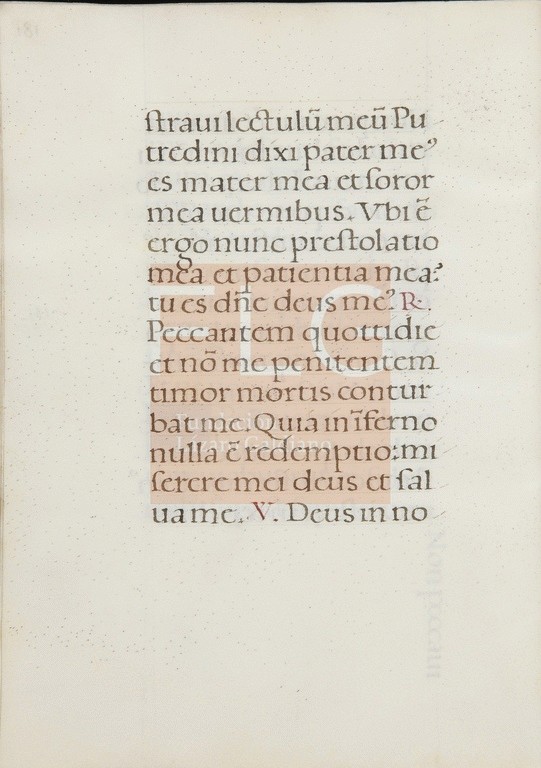 181
straui lectulū meū Pu
tredini dixi pater me⁹
es mater mea et soror
mea uermibus. Vbi ē
ergo nunc prestolatio
mea et patientia mea?
tu es dñe deus me⁹. R.
Peccantem quottidie
et nō me penitentem
timor mortis contur
bat me. Quia in īferno
nulla ē redemptio: mi
serere mei deus et sal
ua me. V. Deus in no
FLG
Fundación
Lázaro Galdiano